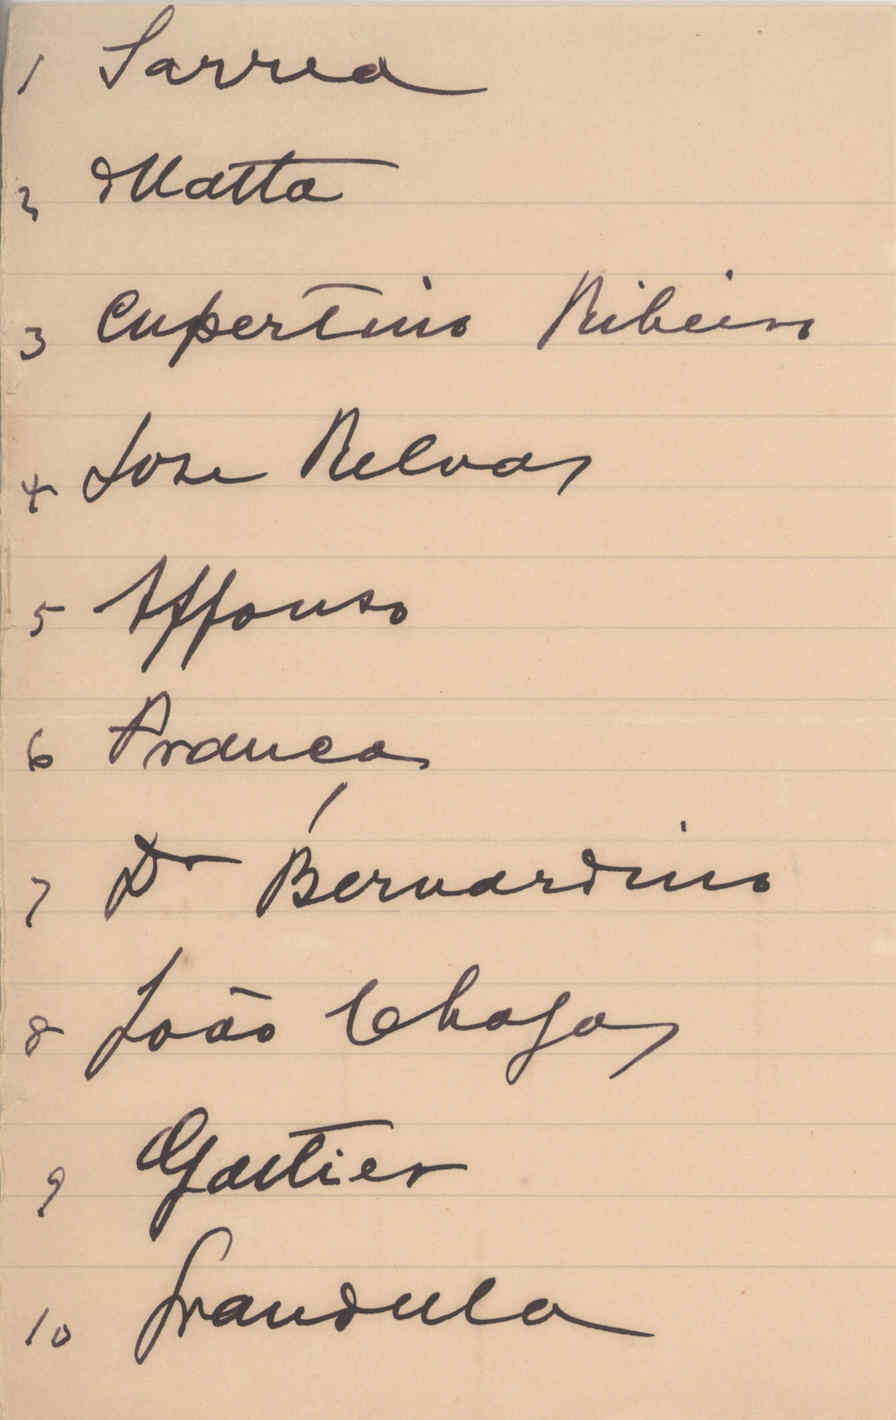 1 Sarrea
2 Matta
3 Cupertino Ribeiro
4 Jose Relvas
5 Affonso
6 França
7 Dr Bernardino
8 João Chagas
9 Gautier
10 Grandula